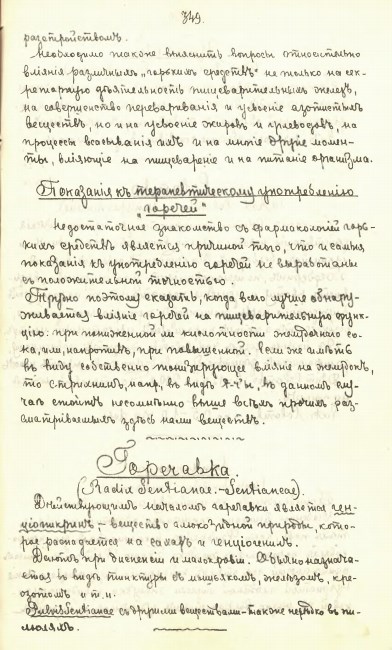 349.
разстройствомъ.
Необходимо также выяснить вопросы относительно
влiянiя различныхъ „горькихъ средствъ" не только на сек-
реторную дѣятельность пищеварительныхъ железъ,
на совершенство перевариванiя и усвоенiе азотистыхъ
веществъ, но и на усвоенiе жировъ и углеводовъ, на
процессы всасыванiя ихъ и на многiе другiе момен-
ты, влiяющiе на пищеваренiе и на питанiе организма.
Показанiя къ терапевтическому употребленiю
„горечей"
Недостаточное знакомство съ фармакологiей горь-
кихъ средствъ является причиной того, что и самыя
показанiя къ употребленiю горечей не выработаны
съ положительной точностью.
Трудно поэтому сказать, когда всего лучше обнару-
живается влiянiе горечей на пищеварительную функ-
цiю: при пониженной ли кислотности желудочнаго со-
ка, или, напротивъ, при повышенной. Если же имѣть
въ виду собственно тонизирующее влiянiе на желудокъ,
то стрихнинъ, напр., въ видѣ t-r'ы, въ данномъ слу-
чаѣ стоитъ несомнѣнно выше всѣхъ прочихъ раз-
сматриваемыхъ здѣсь нами веществъ.
Горечавка.
(Radix Gentianae.-Gentianeae).
Дѣйствующимъ началомъ горечавки является ген-
цiопикринъ,- вещество глюкозидной природы, кото-
рое распадается на сахаръ и генцiогенинъ.
Даютъ при диспепсiи и малокровiи. Обычно назнача-
ется въ видѣ тинктуры съ мышьякомъ, желѣзомъ, кре-
озотомъ и т. п.
Pulvis Gentianae съ другими веществами также нерѣдко въ пи-
люляхъ.